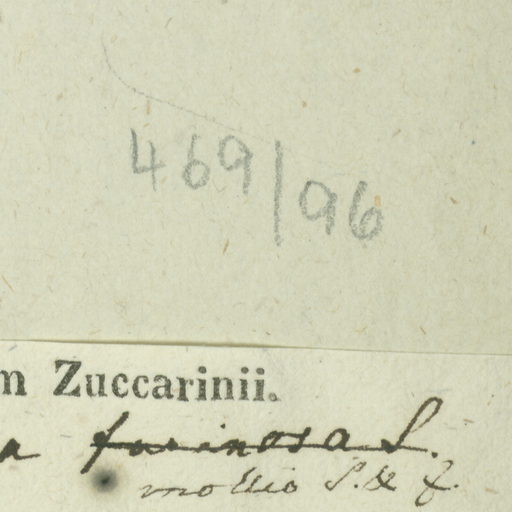 469/96
m Zuccarinii.
a farinosa L.
mollis S. & Z.